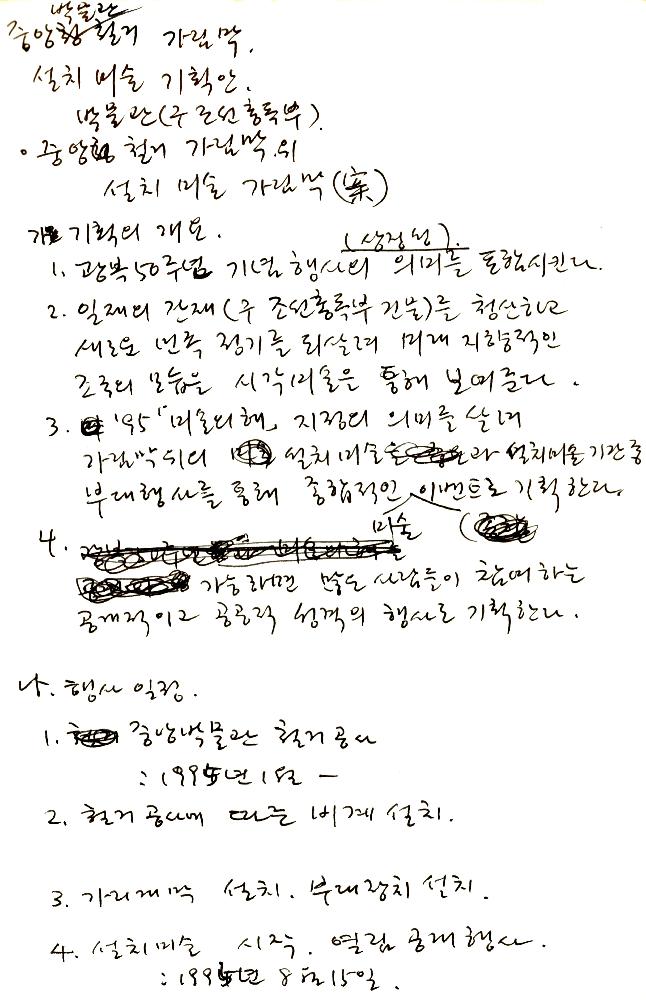 박물관
중앙청 철거 가림막.
설치 미술 기획안.
박물관(구 조선총독부)
• 중앙청 철거 가림막의
설치 미술 가림막(案)
가. 기획의 개요.
(상징성).
1. 광복50주년 기념행사의 의미를 포함시킨다.
2. 일제의 잔재(구 조선총독부 건물)를 청산하고
새로운 민족 정기를 되살려 미래 지향적인
조국의 모습을 시각미술은 통해 보여준다.
3. '95「미술의해」 지정의 의미를 살려
가림막뒤의 설치미술과 설치미술기간중
부대행사를 통해 종합적인 이벤트로 기획한다.
미술 (
4. 가능하면 많은 사람들이 참여하는
공개적이고 공공적 성격의 행사로 기획한다.
나. 행사 일정.
1. 중앙박물관 철거공사
: 1995년 1월 –
2. 철거공사에 따른 비계 설치.
3. 가리개막 설치. 부대장치 설치.
4. 설치미술 시작. 열림 공개행사.
: 1995년 8월15일.